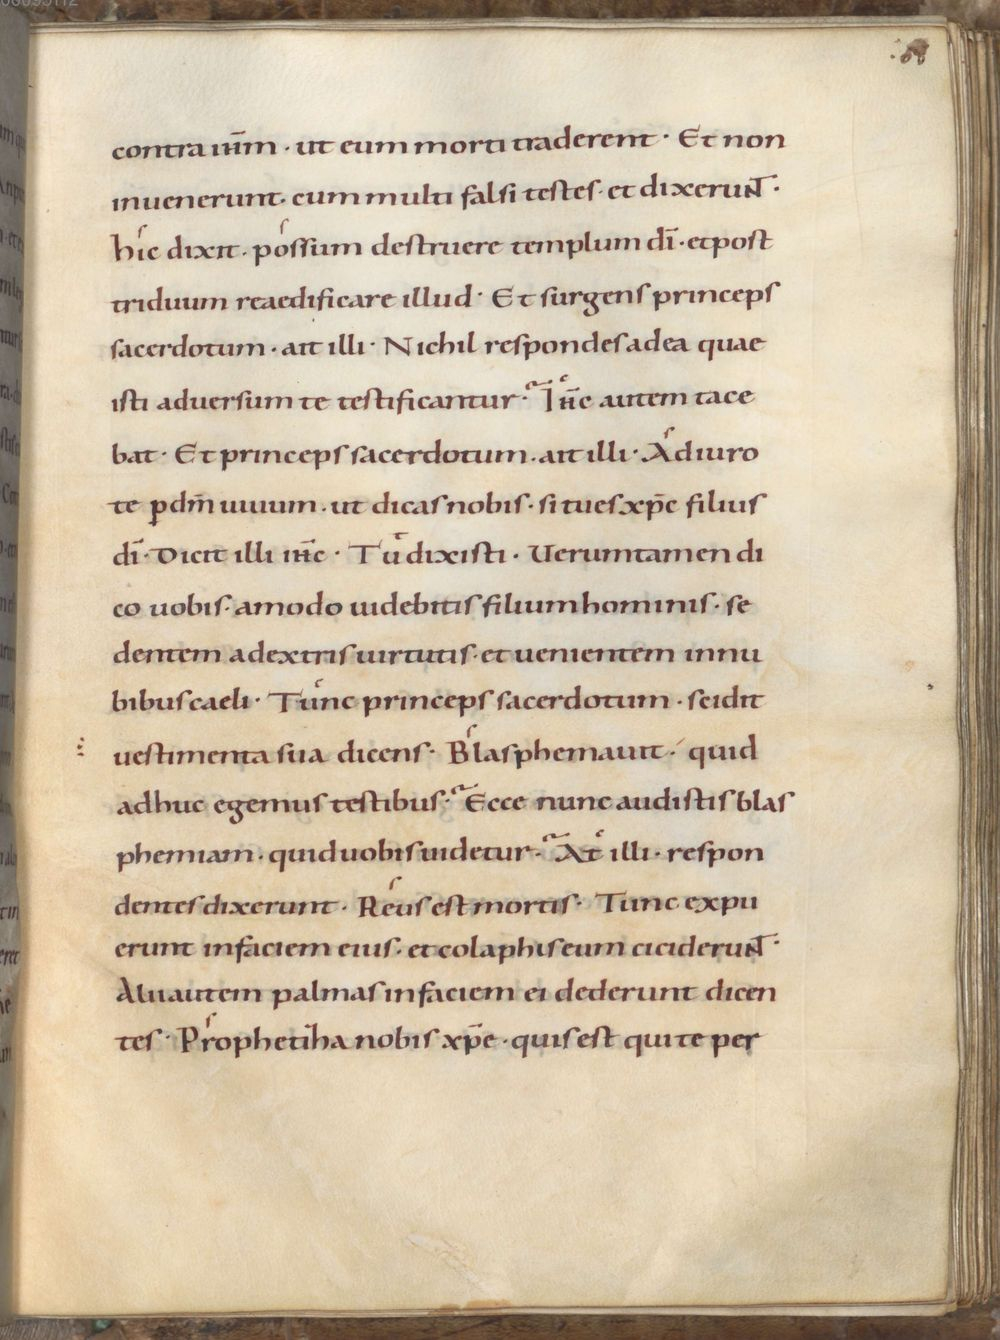 58
contra ih̅m · ut eum morti traderent · Et non
inuenerunt · cum multi falsi testes · et dixerunt ·
hic dixit · possum destruere templum dī · et post
triduum reaedificare illud · Et surgens princeps
sacerdotum · ait illi · Nichil respondes ad ea quae
isti aduersum te testificantur · Ihc̅ autem tace
bat · Et princeps sacerdotum · ait illi · Adiuro
te ꝑ dm̅ uiuum · ut dicas nobis · si tu es xpc̅ filius
dī · Dicit illi ihc̅ · Tu dixisti · Uerumtamen di
co uobis · amodo uidebitis filium hominis · se
dentem a dextris uirtutis · et uenientem in nu
bibus caeli · Tunc princeps sacerdotum · scidit
uestimenta sua dicens · Blasphemauit · quid
adhuc egemus testibus · Ecce nunc audistis blas
phemiam · quid uobis uidetur · At illi · respon
dentes dixerunt · Reus est mortis · Tunc expu
erunt in faciem eius · et colaphis eum ciciderunt ·
Alii autem palmas in faciem ei dederunt dicen
tes · Prophetiha nobis xpe̅ · quis est qui te per